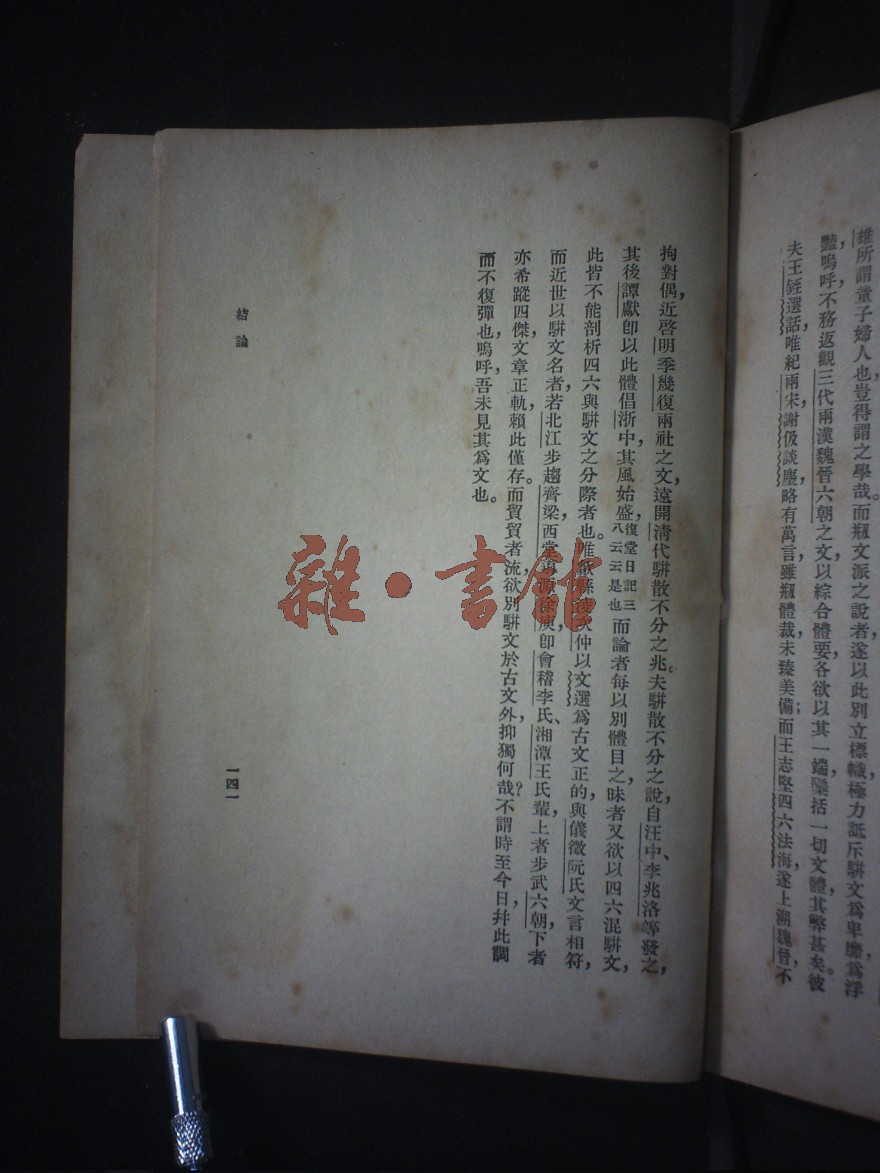 雄所謂童子婦人也豈得謂之學哉。而瓶文派之說者遂以此別立標幟極力詆斥駢文爲卑靡爲浮
豔嗚呼不務返觀三代兩漢魏晉六朝之文以綜合體要各欲以其一端隱括一切文體其弊甚矣。彼
夫王銍選話唯紀兩宋謝伋談麈略有萬言雖瓶體裁未臻美備;而王志堅四六法海遂上溯魏晉不
拘對偶,近啓明季幾復兩社之文,遠開清代駢散不分之兆。夫駢散不分之說,自汪中、李兆洛等發之,
其後譚獻卽以此體倡浙中,其風始盛,復堂日記三八云云是也而論者每以別體目之,昧者又欲以四六混駢文,
此皆不能剖析四六與駢文之分際者也。唯歙縣 次仲以文選爲古文正的,與儀徵阮氏文言相符,
而近世以駢文名者,若北江步趨齊梁,西堂 源徐庾,卽會稽李氏、湘潭王氏輩,上者步武六朝,下者
亦希蹤四傑,文章正軌,賴此僅存。而貿貿者流,欲別駢文於古文外,抑獨何哉?不謂時至今日,幷此調
而不復彈也,嗚呼,吾未見其爲文也。
結論
一四一
雜·書館